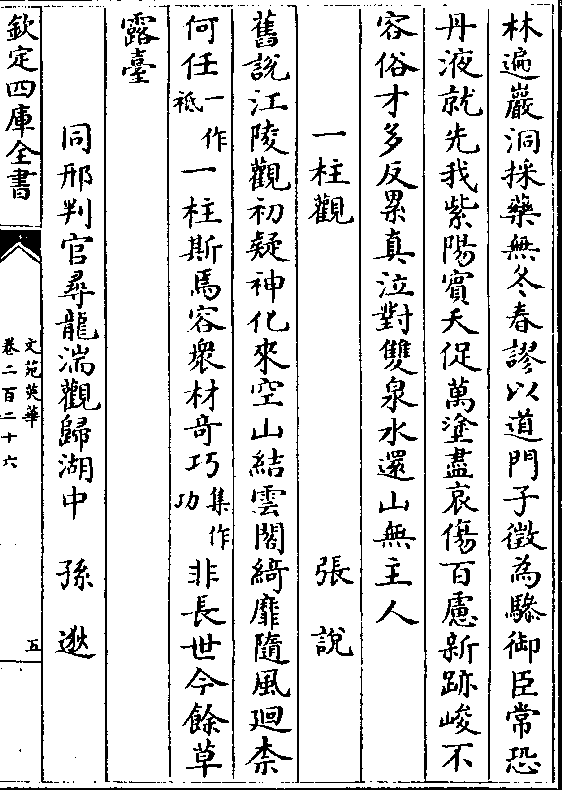 林遍巖洞採藥無冬春謬以道門子徵為驂御臣常恐
丹液就先我紫陽賓夭促萬塗盡哀傷百慮新跡峻不
容俗才多反累真泣對雙泉水還山無主人
一柱觀 張說
舊說江陵觀初疑神化來空山結雲閣綺靡隨風迴柰
何任一作祗一柱斯焉容衆材奇巧集作功非長世今餘草
露臺
同邢判官尋龍湍觀歸湖中 孫逖
欽定四庫全書
文苑英華
卷二百二十六
五